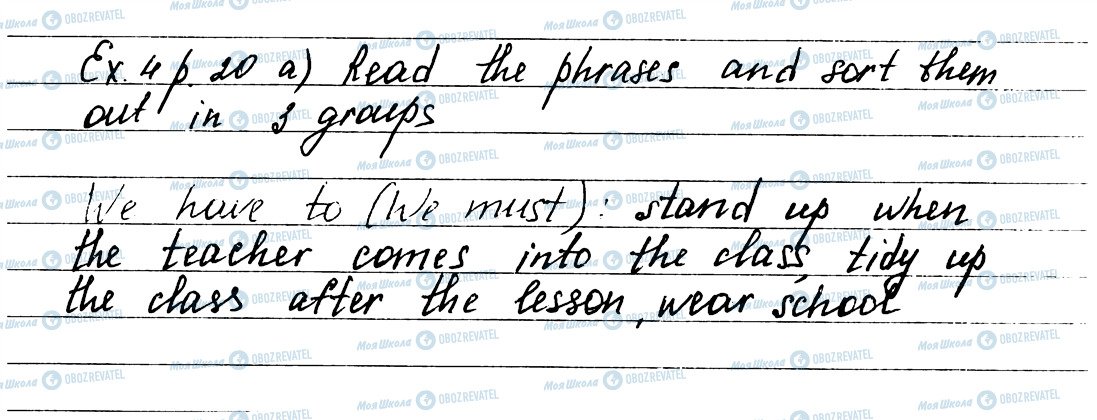 Ex. 4 p. 20 a) Read the phrases and sort them
out in 3 groups
We have to (We must): stand up when
the teacher comes into the class, tidy up
the class after the lesson, wear school